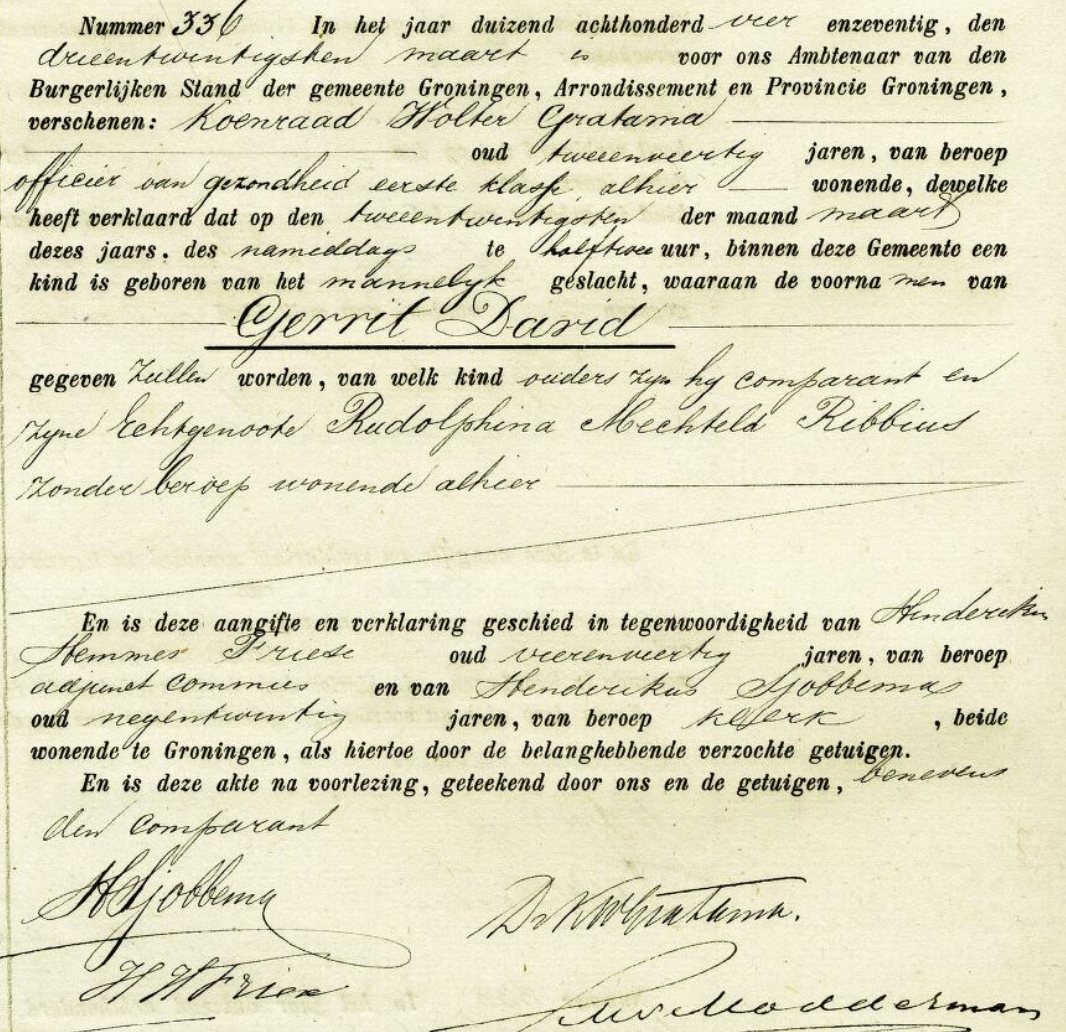 Nummer 336 In het jaar duizend achthonderd vier enzeventig, den
drieentwintigsten maart is voor ons Ambtenaar van den
Burgerlijken Stand der gemeente Groningen, Arrondissement en Provincie Groningen,
verschenen: Koenraad Wolter Gratama
oud tweeenveertig jaren, van beroep
officier van gezondheid eerste klasse alhier wonende, dewelke
heeft verklaard dat op den tweeentwintigsten der maand maart
dezes jaars, des namiddags te halftwee uur, binnen deze Gemeente een
kind is geboren van het mannelyk geslacht, waaraan de voorna men van
Gerrit David
gegeven zullen worden, van welk kind ouders zyn hy comparant en
zyne Echtgenoote Rudolphina Mechteld Ribbius
zonder beroep wonende alhier
En is deze aangifte en verklaring geschied in tegenwoordigheid van Henderikus
Hemmes Friese oud vierenveertig jaren, van beroep
adjunct commies en van Henderikus Sjobbema
oud negentwintig jaren, van beroep klerk, beide
wonende te Groningen, als hiertoe door de belanghebbende verzochte getuigen.
En is deze akte na voorlezing, geteekend door ons en de getuigen, benevens
den comparant
HSjobbema
Dr KWGratama.
H H Friese
Modderman